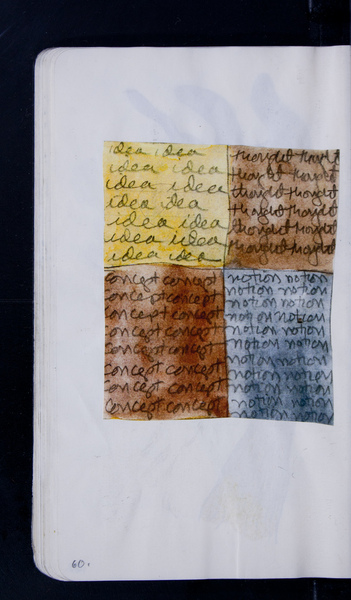 idea idea
idea idea
idea idea
idea idea
idea idea
idea idea
idea idea
thought thought
thought thought
thought thought
thought thought
thought thought
thought thought
concept concept
concept concept
concept concept
concept concept
concept concept
concept concept
concept concept
concept concept
notion notion
notion notion
notion notion
notion notion
notion notion
notion notion
notion notion
notion notion
notion notion
notion notion
notion notion
60.